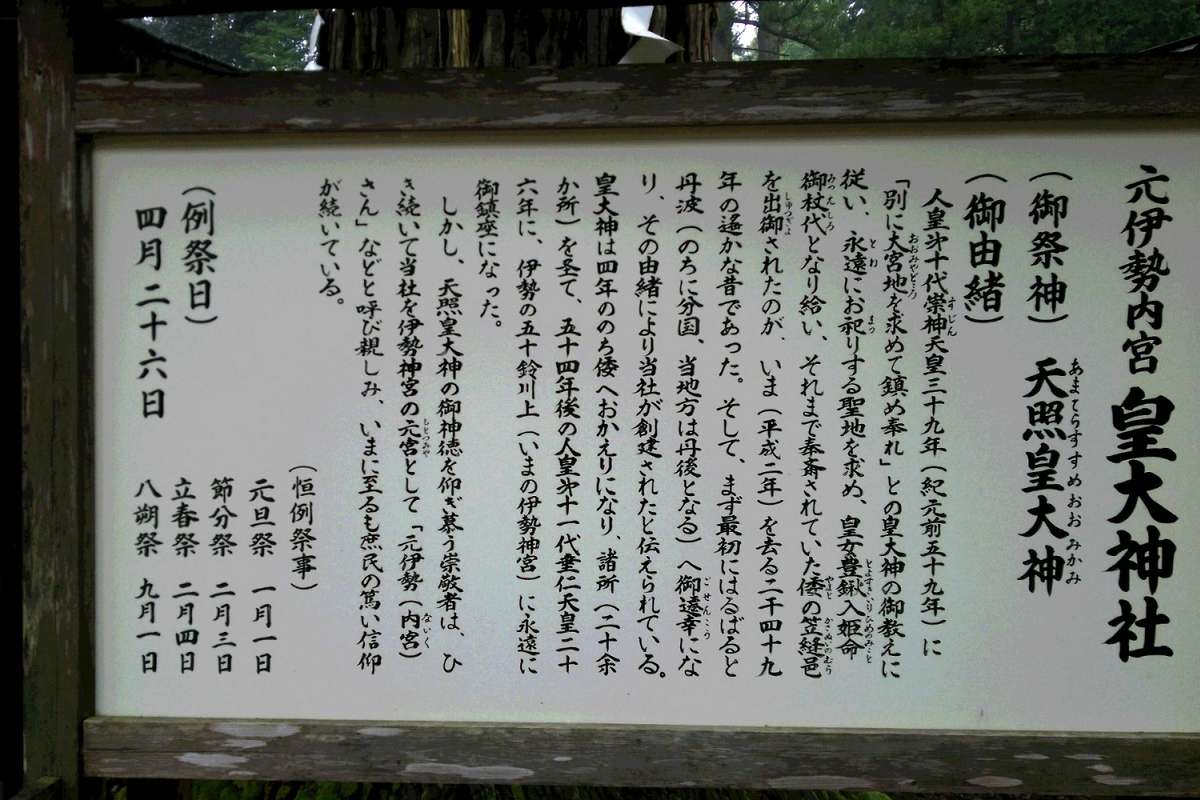 元伊勢内宮 皇大神社
(御祭神) 天照皇大神
あまてらすすめおおみかみ
(御由緒)
人皇第十代崇神天皇三十九年(紀元前五十九年)に
「別に大宮地を求めて鎮め奉れ」との皇大神の御教えに
従い、永遠にお祀りする聖地を求め、皇女豊鍬入姫命
御杖代となり給い、それまで奉斎されていた倭の笠縫邑
を出御されたのが、いま(平成二年)を去る二千四十九
年の遙かな昔であった。そして、まず最初にはるばると
丹波(のちに分国、当地方は丹後となる)へ御遷幸にな
り、その由緒により当社が創建されたと伝えられている。
皇大神は四年ののち倭へおかえりになり、諸所(二十余
か所)を圣て、五十四年後の人皇第十一代垂仁天皇二十
六年に、伊勢の五十鈴川上(いまの伊勢神宮)に永遠に
御鎮座になった。
しかし、天照皇大神の御神徳を仰ぎ慕う崇敬者は、ひ
き続いて当社を伊勢神宮の元宮として「元伊勢(内宮)
さん」などと呼び親しみ、いまに至るも庶民の篤い信仰
が続いている。
(恒例祭事)
元旦祭 一月一日
節分祭 二月三日
立春祭 二月四日
八朔祭 九月一日
(例祭日)
四月二十六日